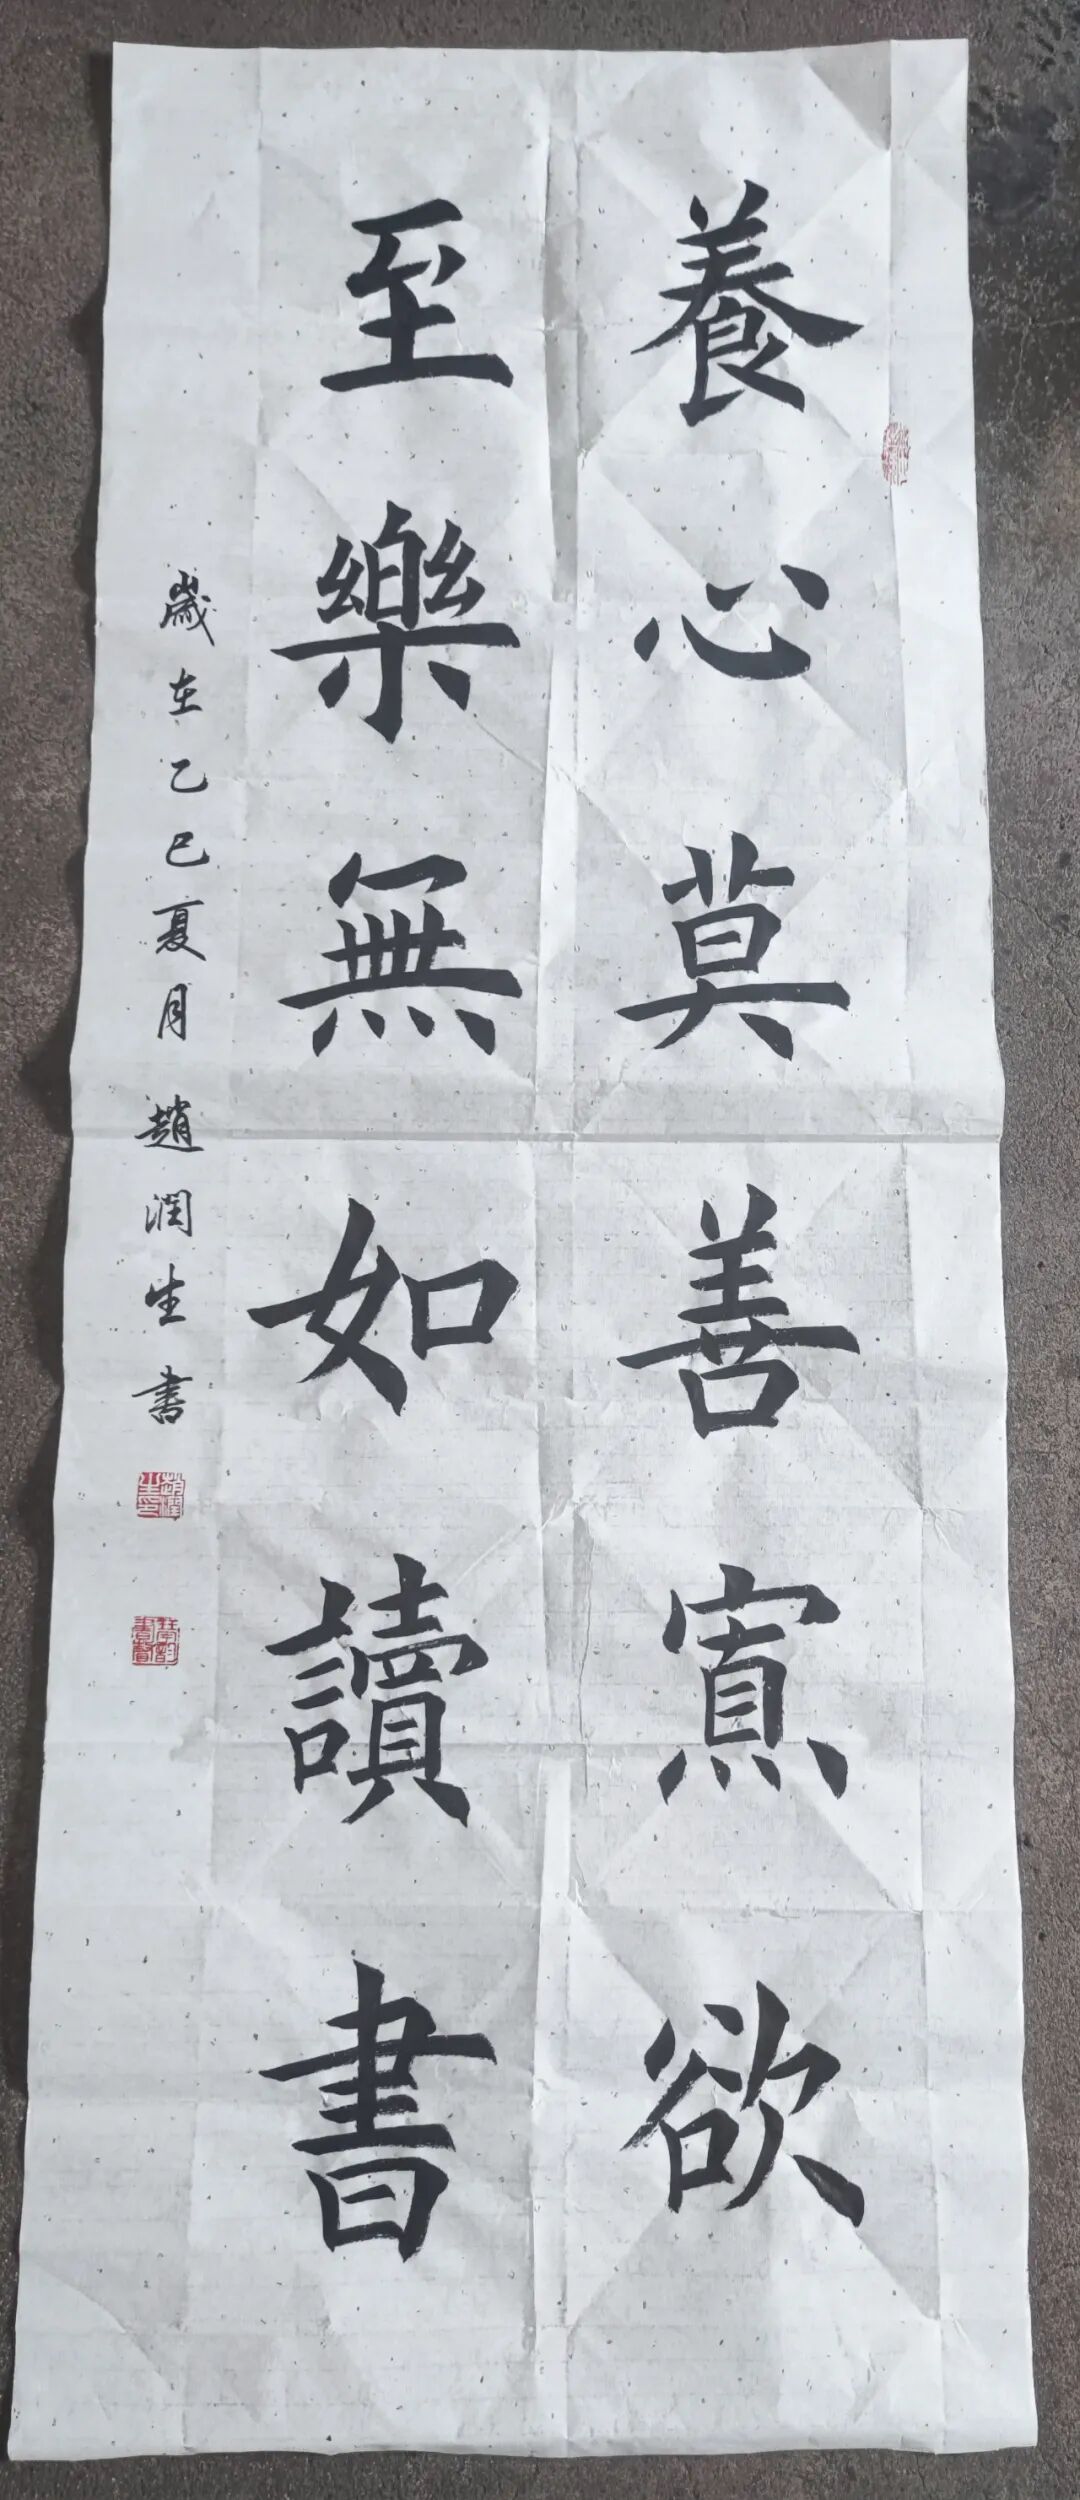 養心莫善寡欲
至樂無如讀書
歲在乙巳夏月趙潤生書